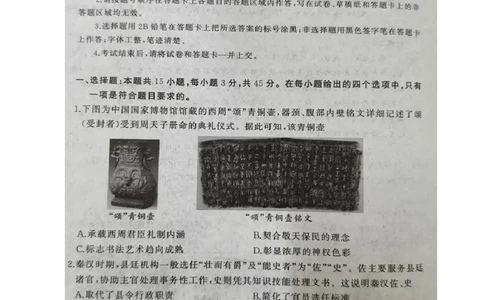 答题区域均无效。
3.选择题用2B铅笔在答题卡上把所选答案的标号涂黑;非选择题用黑色签字笔在答题卡
上作答;字体工整,笔迹清楚。
4.考试结束后,请将试卷和答题卡一并上交。
一、选择题:本题共15小题,每小题3分,共45分。在每小题给出的四个选项中,只有
一项是符合题目要求的。
1.下图为中国国家博物馆馆藏的西周“颂”青铜壶,器颈、腹部内壁铭文详细记述了颂
(受封者)受到周天子册命的典礼仪式。据此可知,该青铜壶
“颂”青铜壶
“颂”青铜壶铭文
A.承载西周君臣礼制内涵
B.契合敬天保民的理念
C.标志书法艺术趋向成熟
D.彰显浓厚的神权色彩
2.秦汉时期,县廷机构一般选任“壮而有爵”及“能史者”为“佐”“史”。佐主要服务县廷
诸官,协助主官处理事务性工作,史则凭其知识技能处理文书。这说明秦汉佐、史
A.取代了县令行政职责
B.简化了官员选任标准